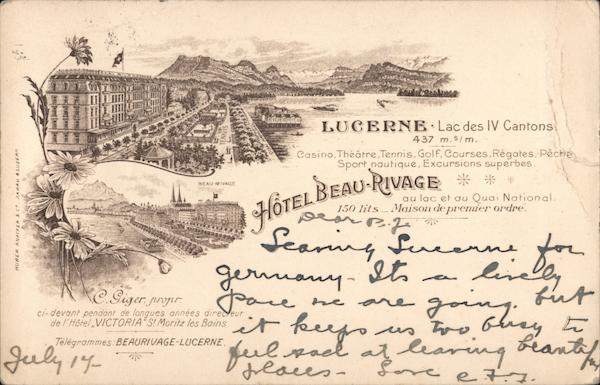 LUCERNE · Lac des IV Cantons
437 m. s/m.
Casino, Théâtre, Tennis, Golf, Courses, Régates, Pêche
Sport nautique, Excursions superbes.
BEAU-RIVAGE
HÔTEL BEAU-RIVAGE
au lac et au Quai National.
150 lits _ Maison de premier ordre.
C. Giger, propr.
ci-devant pendant de longues années directeur
de l'Hôtel „VICTORIA" St. Moritz les Bains
Télégrammes: BEAURIVAGE-LUCERNE.
Dear
Leaving Lucerne for
Germany - Its a lively
pace we are going. but
it keeps us too busy to
feel sad at leaving beautiful
places - Love
July 17-